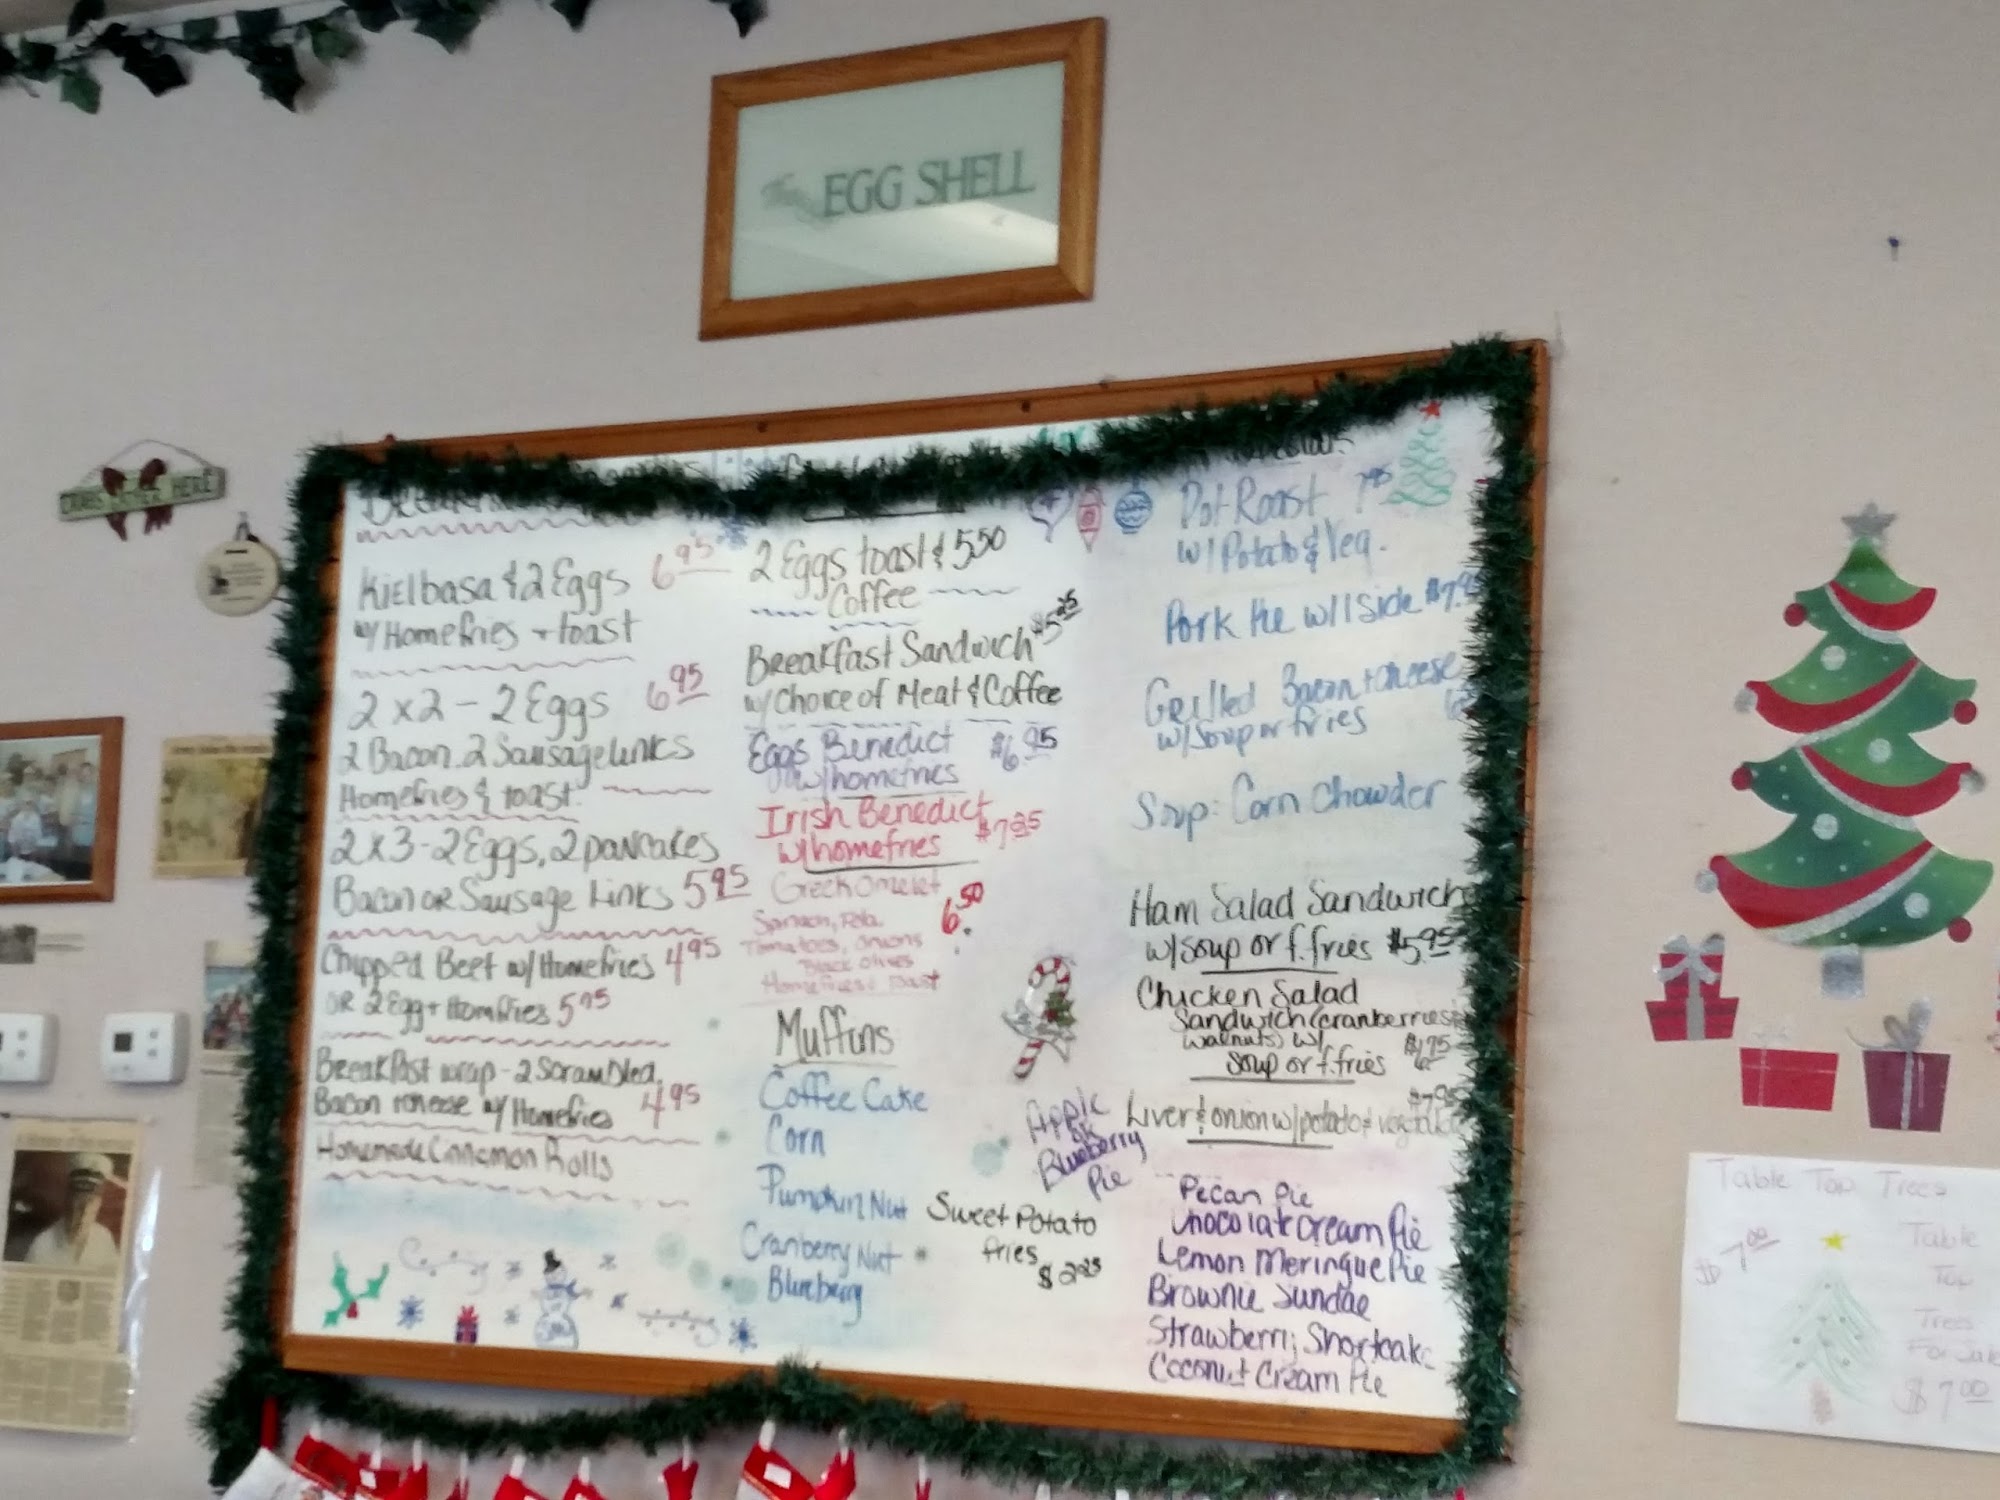 The EGG SHELL
Kielbasa & 2 Eggs 6 95
w/ Homefries + toast
2 x 2 - 2 Eggs 6 95
2 Bacon. 2 Sausage Links
Homefries & toast.
2 x 3 - 2 Eggs, 2 pancakes
Bacon or Sausage Links 5 95
Chipped Beef w/ Homefries 4 95
OR 2 Egg + Homfries 5 95
Breakfast wrap - 2 Scrambled,
Bacon + cheese w/ Homefries 4 95
Homemade Cinnamon Rolls
2 Eggs toast & 5 50
Coffee
Breakfast Sandwich $5 25
w/ Choice of Meat & Coffee
Eggs Benedict $6.95
w/ homefries
Irish Benedict
w/ homefries
Greek Omelet
6. 50
Tomatoes, Onions
Black Olives
Muffins
Coffee Cake
Corn
Pumpkin Nut
Cranberry Nut
Blueberry
Apple
OR
Blueberry
Pie
Sweet Potato
fries
$ 2 25
Pot Roast 7 95
w/ Potato & Veg.
Pork Pie w/ 1 side
Grilled Bacon + cheese
w/ Soup or fries
Soup: Corn Chowder
Ham Salad Sandwich
w/ Soup or f. fries $5.95
Chicken Salad
Sandwich (cranberries +
walnuts) w/
Soup or f. fries
Liver & onion w/ potato & vegetable
Pecan Pie
Chocolate Cream Pie
Lemon Meringue Pie
Brownie Sundae
Strawberry Shortcake
Coconut Cream Pie
Table Top Trees
$ 7 00
Table
Top
Trees
For Sale
$ 7 00